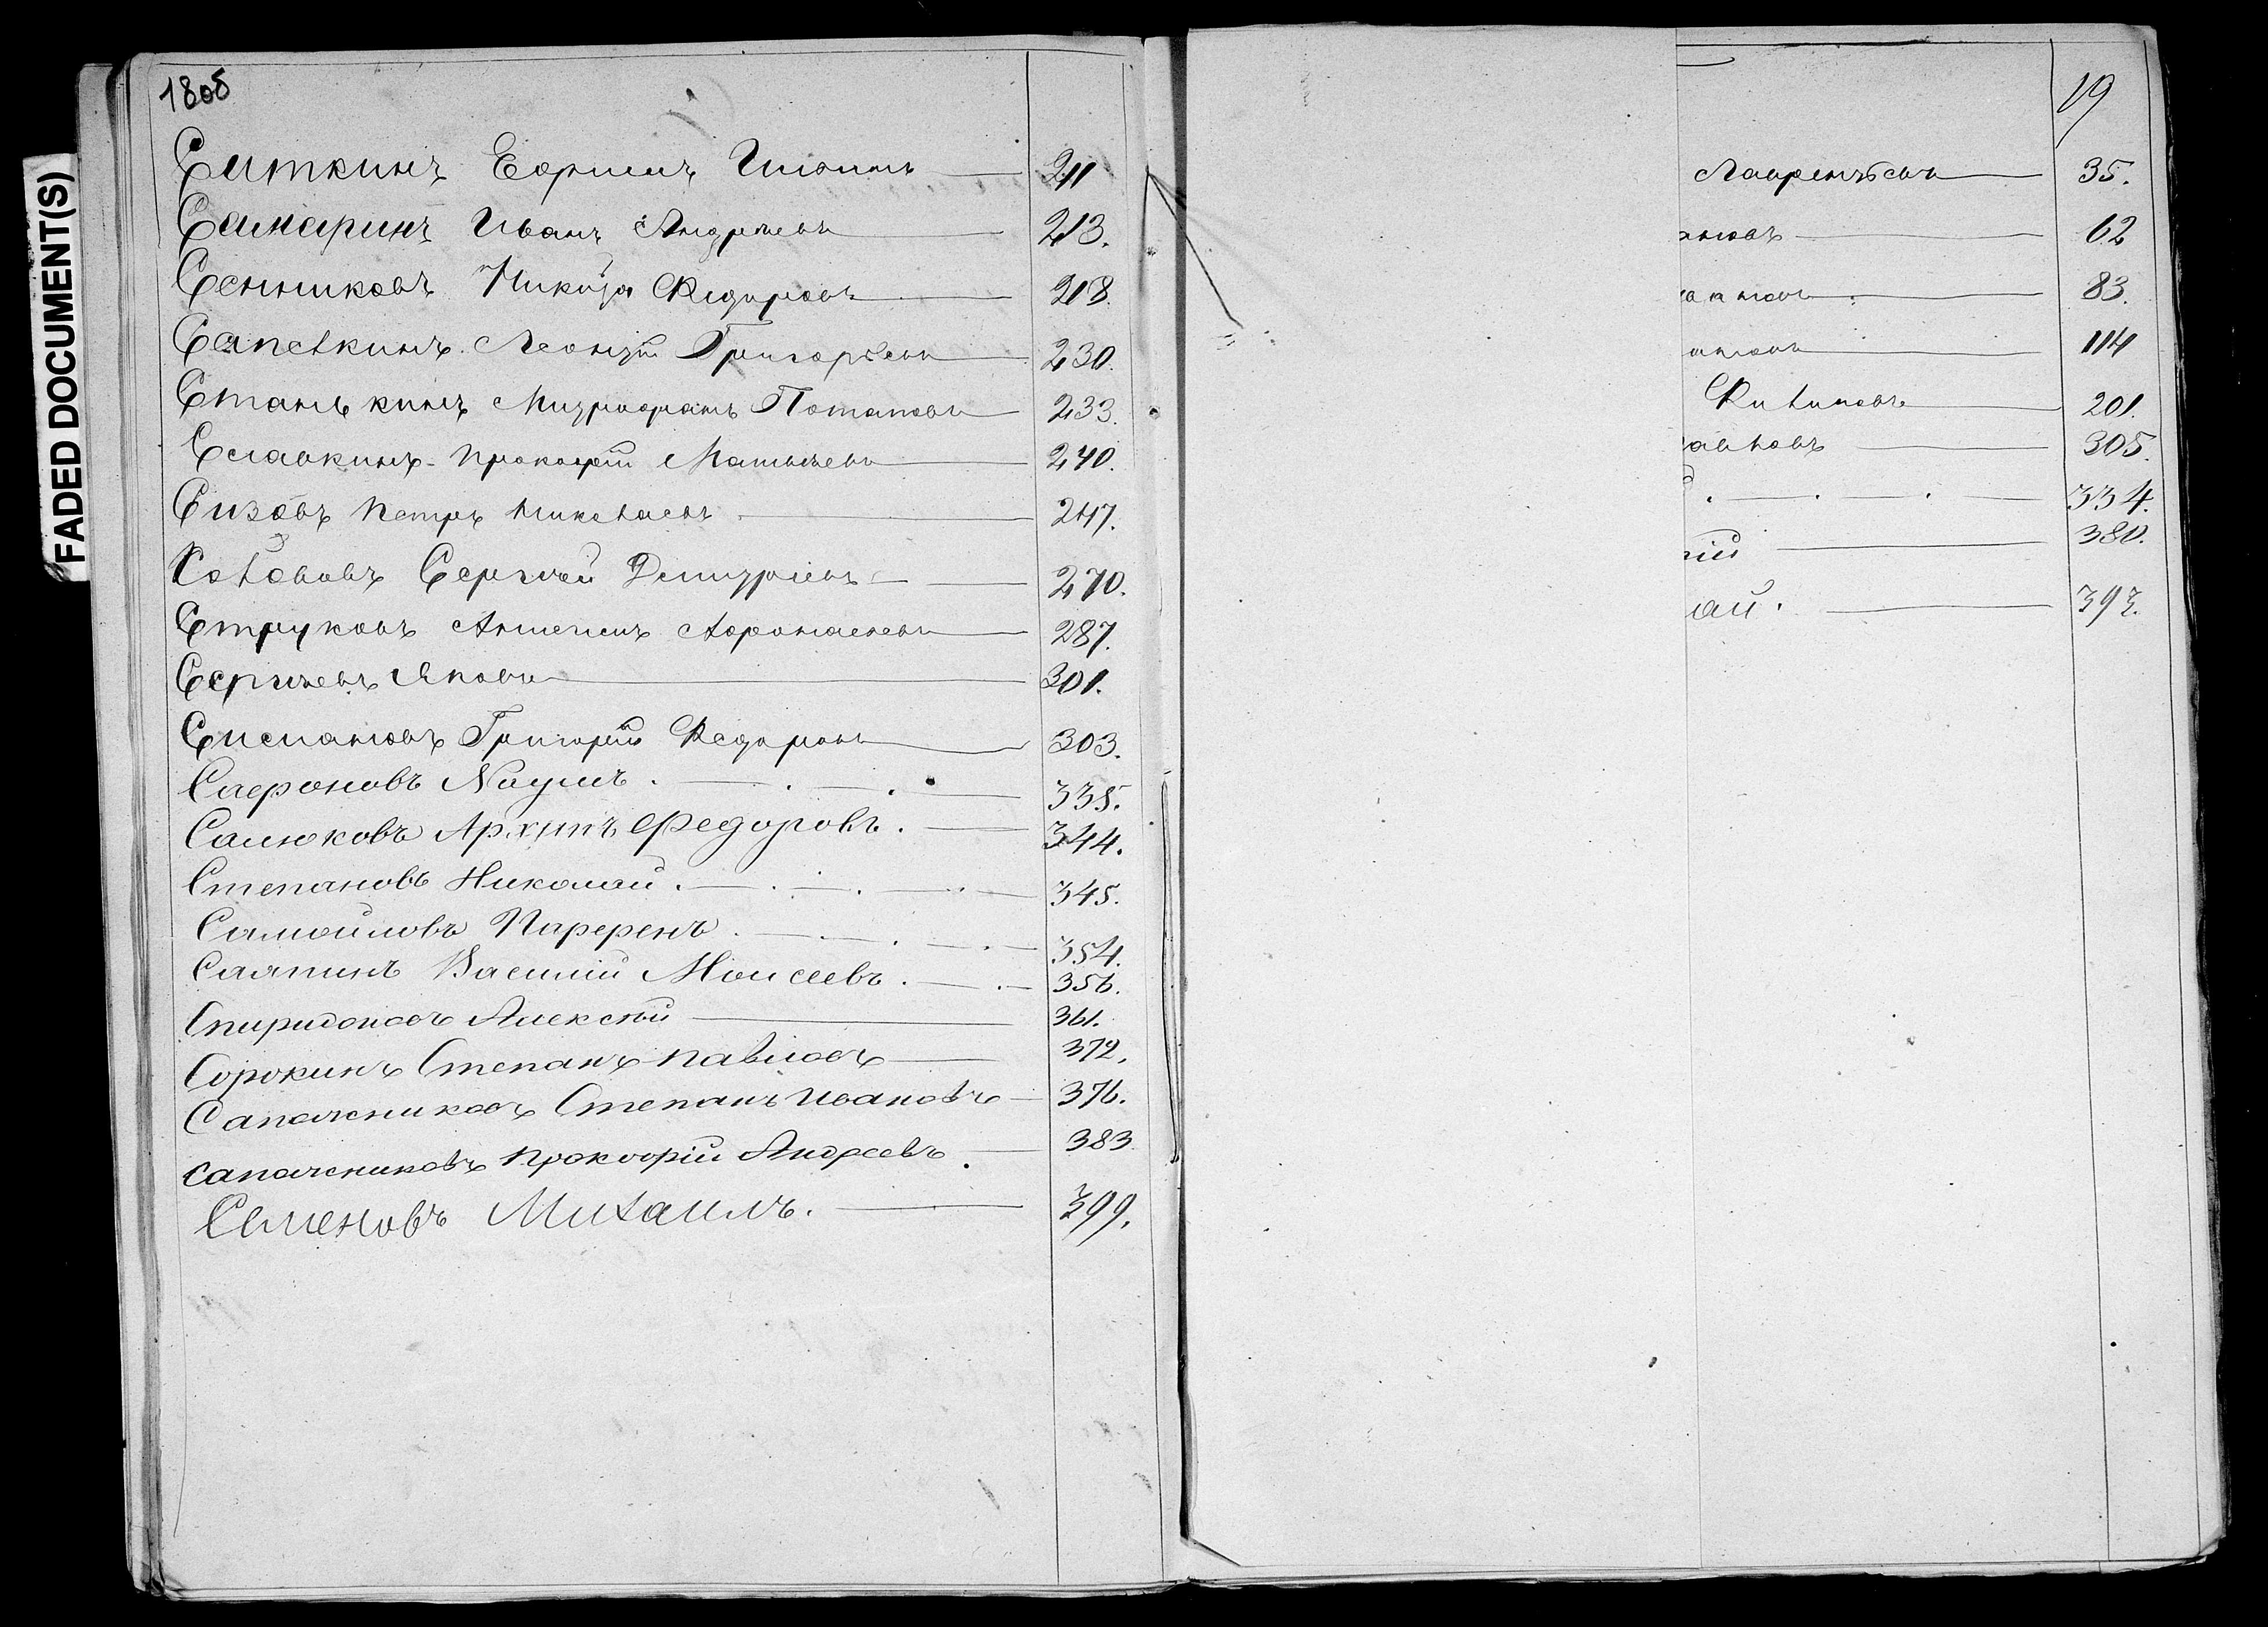 FADED DOCUMENT(S)
1805
Ситкинъ Ефимъ 211
Самаринъ Иванъ Андреевъ 213.
Сенниковъ Никита Федоровъ 218.
Сапелкинъ Леонтій Григорьевъ 230.
Станькинъ Митрофанъ Потаповъ 233.
Славкинъ Прокофій Матвѣевъ 240.
Сизовъ Петръ Николаевъ 247.
Солововъ Сергѣй Дмитріевъ 270.
Струковъ Афонасьевъ 287.
Сергѣевъ Яковъ 301.
Григорій Федоровъ 303.
Сафроновъ Наумъ 335.
Самюковъ Архипъ Федоровъ 344.
Степановъ Николай 345.
Самойловъ Парфенъ 354.
Саяпинъ Василій Моисеевъ 356.
Спиридоновъ Алексѣй 361.
Сорокинъ Степанъ Павловъ 372.
Сапожниковъ Степанъ Ивановъ 376.
Сапожниковъ Прокофій Андреевъ 383
Семеновъ Михаилъ 399.
19
Лаврентьевъ 35.
новъ 62
новъ 83.
новъ 114
Филиповъ 201.
авловъ 305.
334.
ій 380.
лай 397.